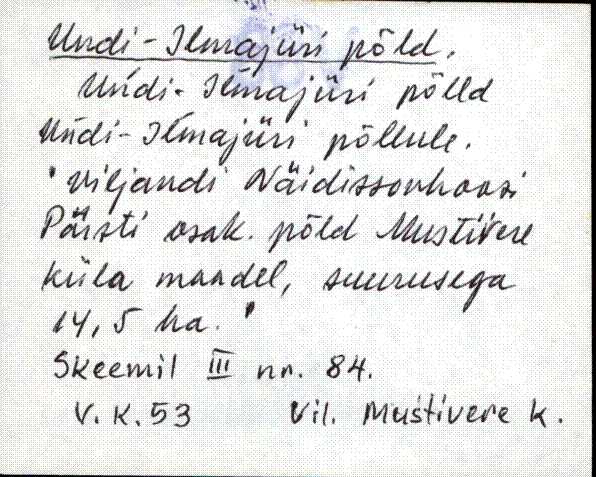 Undi-Ilmajüri põld.
Uńdi-Iĺmajüri põlld
Uńdi-Iĺmajüri põllule.
"Viljandi Näidissovhoosi
Päristi osak. põld Mustivere
küla maadel, suurusega
14,5 ha."
Skeemil III nr. 84.
V.K.53 Vil. Mustivere k.